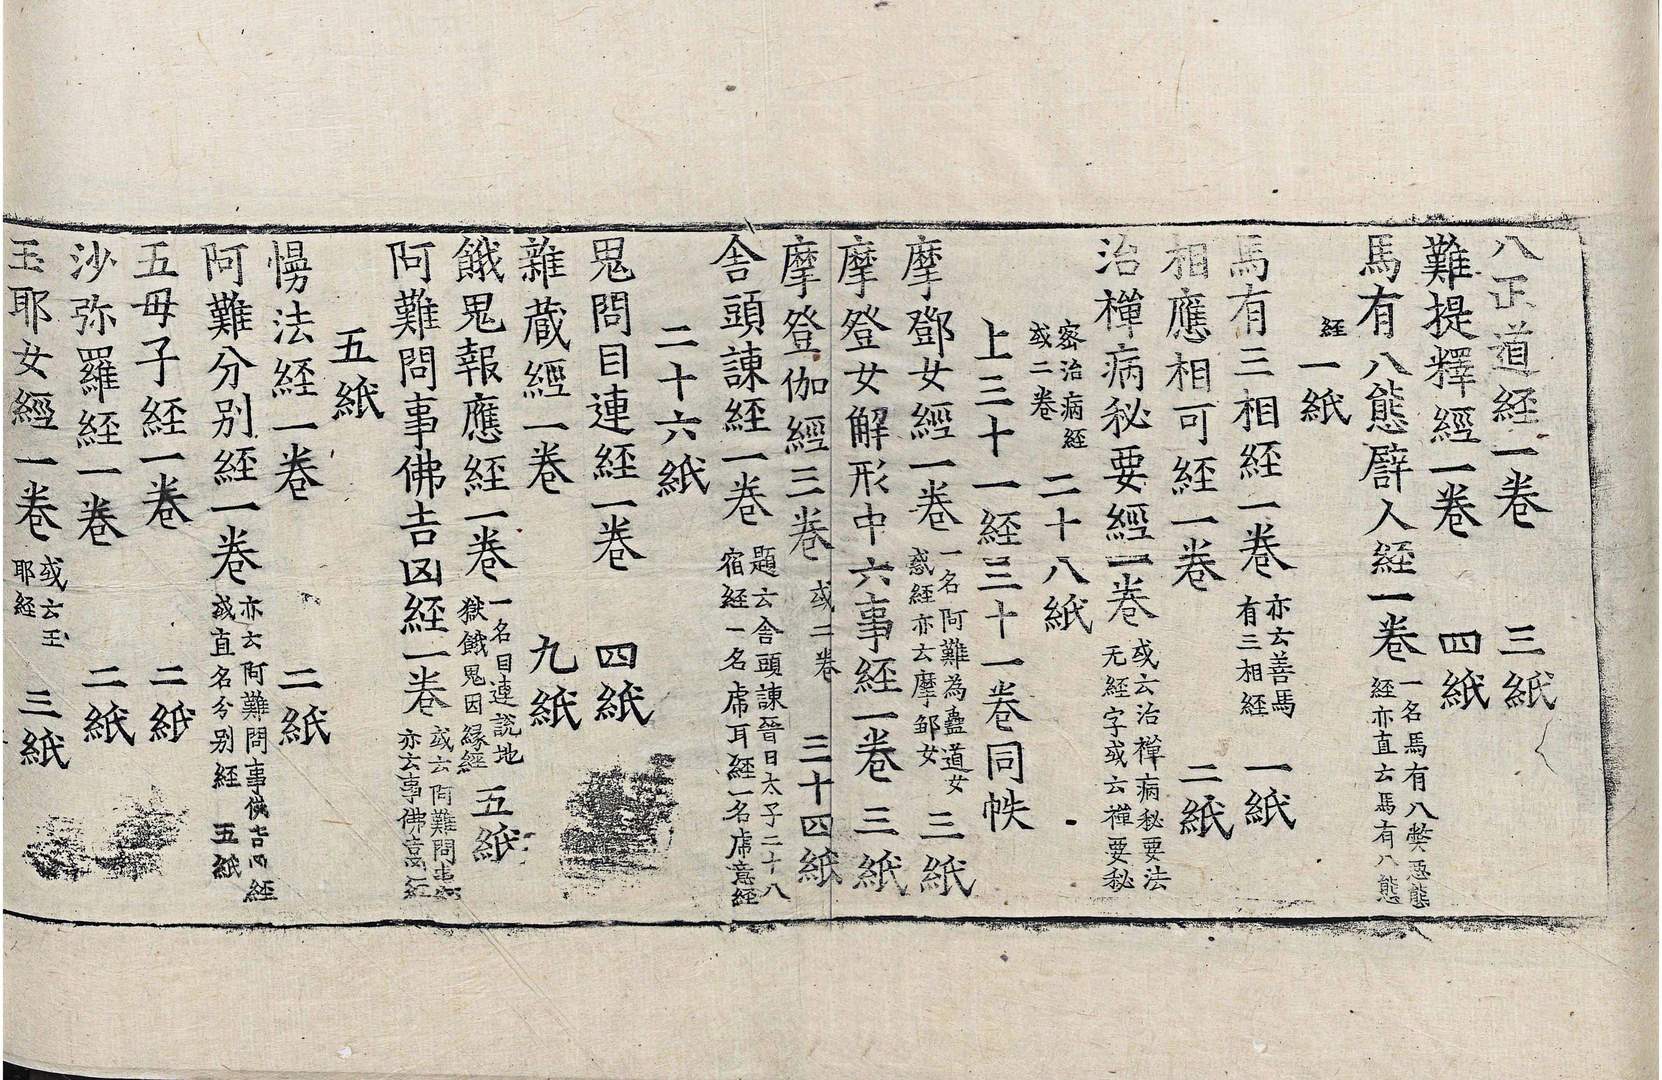 八正道経一卷 三紙
難提釋經一卷 四紙
馬有八態譬人経一卷 一名馬有八弊惡態
経亦直云馬有八態
経 一紙
馬有三相経一卷 亦云善馬
有三相経 一紙
相應相可経一卷 二紙
治禪病秘要經一卷 或云治禪病秘要法
无経字或云禪要秘
宻治病経
或二卷 二十八紙
上三十一経三十一卷同帙
摩鄧女經一卷 一名阿難為蠱道女
惑経亦云摩鄒女 三紙
摩登女解形中六事経一卷 三紙
摩登伽經三卷 或二卷 三十四紙
舎頭諫経一卷 題云舎頭諫晉曰太子二十八
宿経一名虎耳経一名虎意経
二十六紙
鬼問目連経一卷 四紙
雜蔵經一卷 九紙
餓鬼報應経一卷 一名目連説地
獄餓鬼因緣經 五紙
阿難問事佛吉凶経一卷 或云阿難問事
亦云事佛吉凶経
五紙
慢法経一卷 二紙
阿難分別経一卷 亦云阿難問事佛吉凶経
或直名分別經 五紙
五母子経一卷 二紙
沙弥羅経一卷 二紙
玉耶女經一卷 或云玉
耶経 三紙